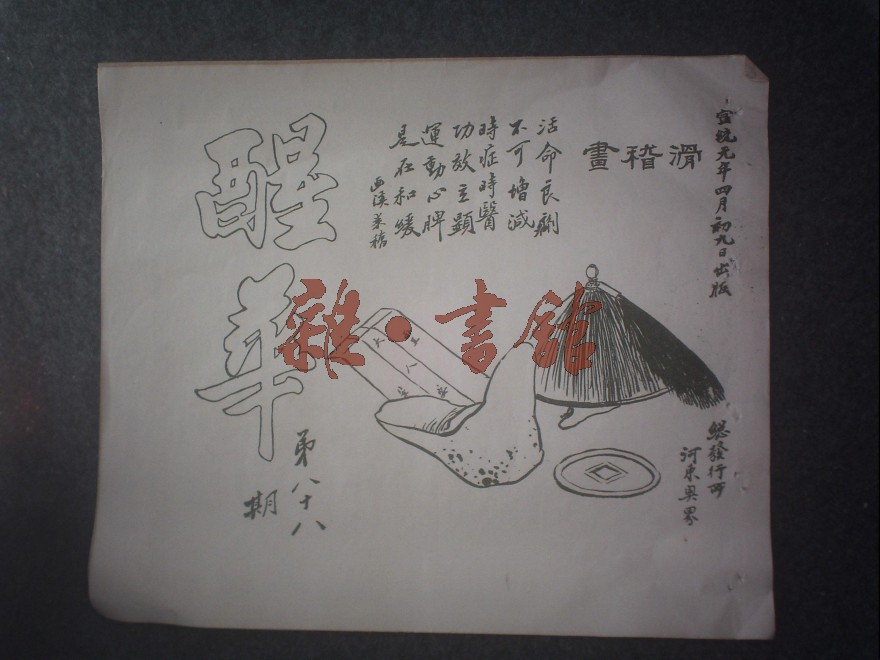 宣統元年四月初九日出版
總發行所
河東奧界
滑稽畫
活命良劑
不可增減
時症時醫
功效立顯
運動心脾
是在和緩
醒華
第八十八
期
雜·書館